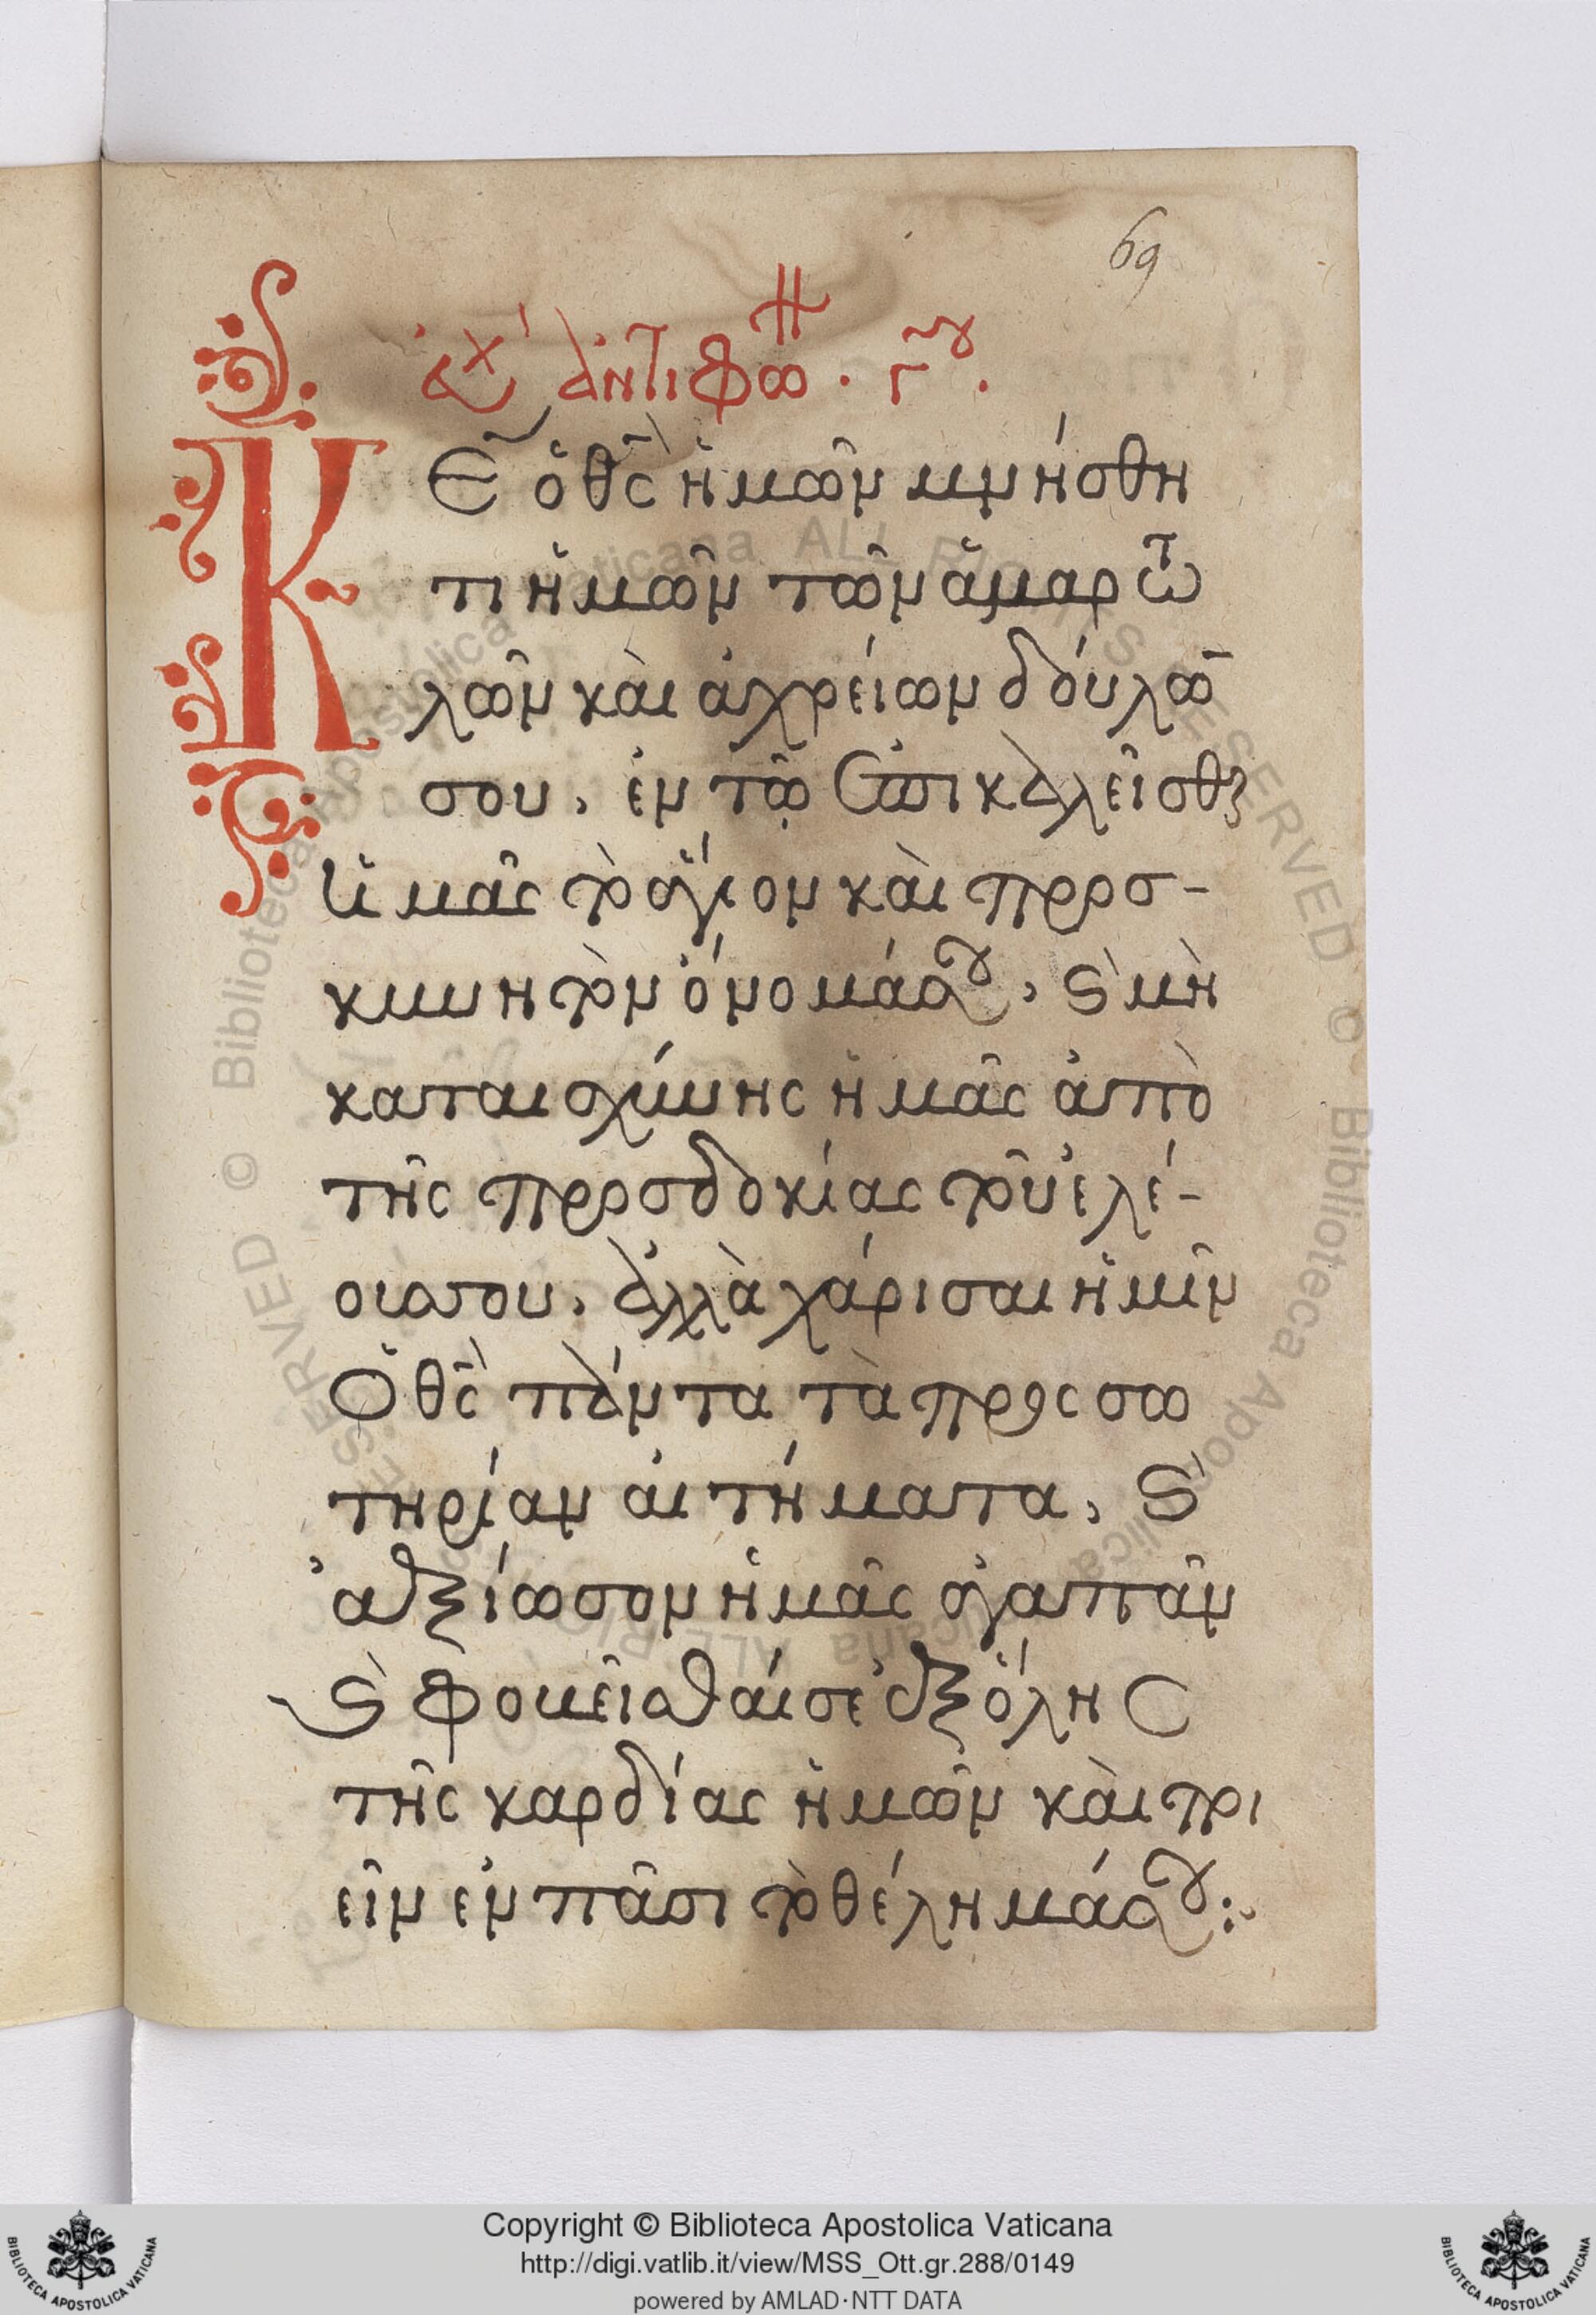 69
εὐχ ἀντιφω . γου .
Κ
Ε ὁ θς ἡμῶν μνήσθη
τι ἡμῶν τῶν ἁμαρτω
λῶν καὶ ἀχρείων δούλω
σου, ἐν τῶ ἐπικαλεῖσθαι
ἡμᾶς τὸ ἅγιον καὶ προσ-
κυνητὸν ὄνομά σου, ϛ μὴ
καταισχύνης ἡμᾶς ἀπὸ
τῆς προσδοκίας τοῦ ἐλέ-
ους σου, ἀλλὰ χάρισαι ἡμῖν
ὁ θς πάντα τὰ πρὸς σω
τηρίαν αἰτήματα, ϛ
ἀξίωσον ἡμᾶς ἀγαπᾶν
ϛ φοβεῖσθαί σε ἐξ ὅλης
τῆς καρδίας ἡμῶν καὶ ποι
εῖν ἐν πᾶσι τὸ θέλημά σου :
Copyright © Biblioteca Apostolica Vaticana
http://digi.vatlib.it/view/MSS_Ott.gr.288/0149
powered by AMLAD·NTT DATA
BIBLIOTECA APOSTOLICA VATICANA
BIBLIOTECA APOSTOLICA VATICANA